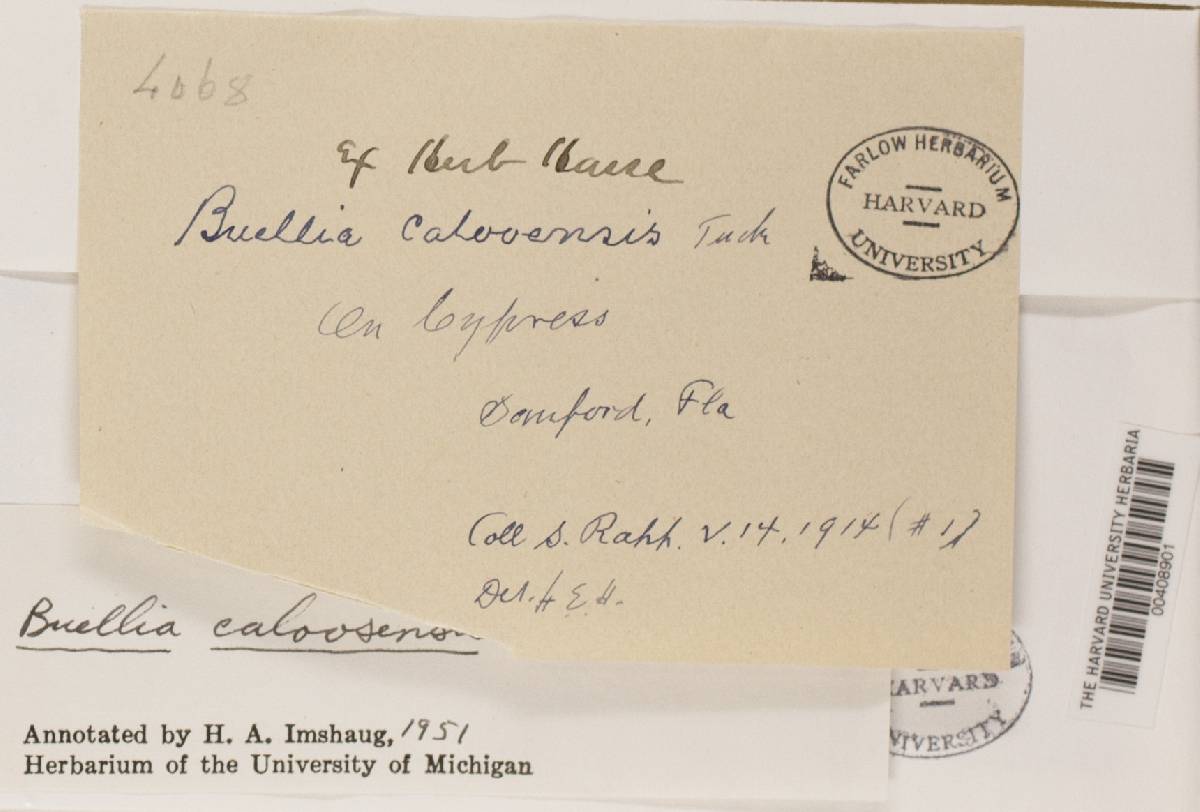 4068
Ex Herb Hasse
Buellia calooensis Tuck
On Cypress
Sanford, Fla
Coll S. Rapp. V. 14. 1914 (#1)
Det. H. E. H.
FARLOW HERBARIUM
HARVARD
UNIVERSITY
Buellia caloosensis
Annotated by H. A. Imshaug, 1951
Herbarium of the University of Michigan
HARVARD
UNIVERSITY
THE HARVARD UNIVERSITY HERBARIA
00408901